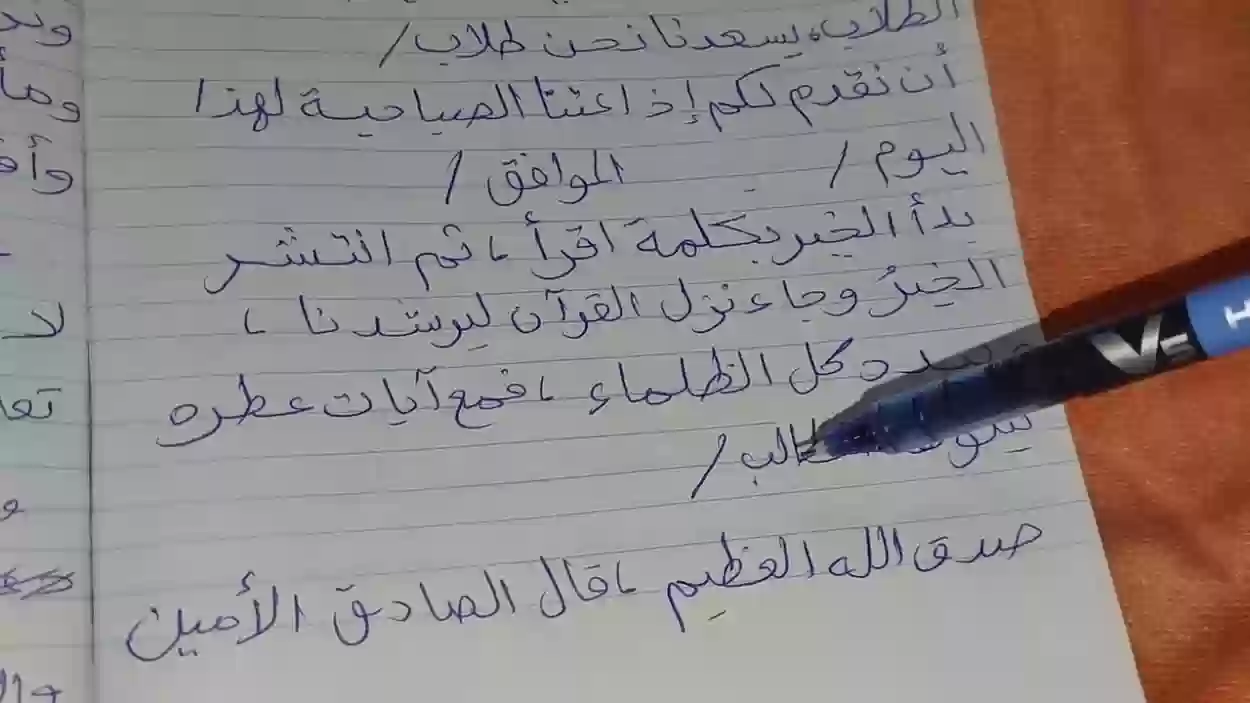 الطلاب، يسعدنا نحن طلاب/
أن نقدم لكم إذاعتنا الصباحية لهذا
اليوم / الموافق /
بدأ الخير بكلمة اقرأ، ثم انتشر
الخيرُ وجاء نزل القرآن ليرشدنا،
كل الظلماء، فمع آيات عطره
/
صدق الله العظيم، قال الصادق الأمين